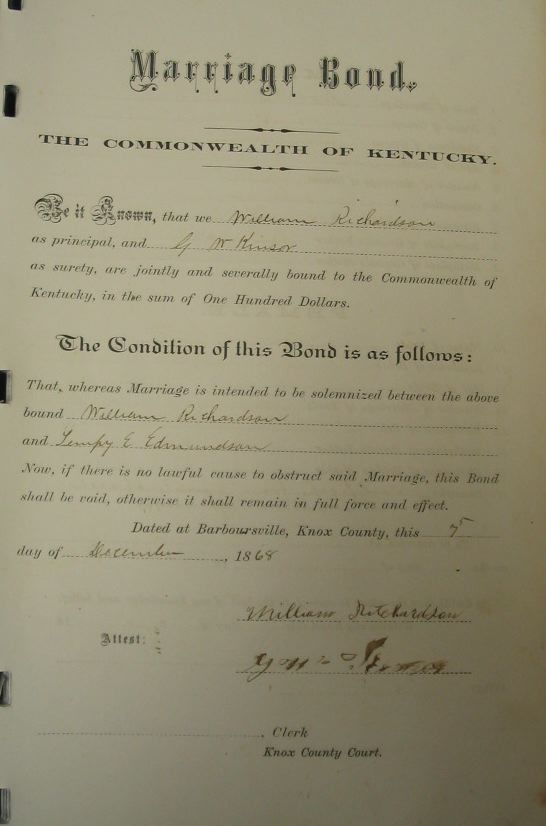 Marriage Bond.
THE COMMONWEALTH OF KENTUCKY.
Be it Known, that we William Richardson
as principal, and G W
as surety, are jointly and severally bound to the Commonwealth of
Kentucky, in the sum of One Hundred Dollars.
The Condition of this Bond is as follows:
That, whereas Marriage is intended to be solemnized between the above
bound William Richardson
and Tempy E Edmundson
Now, if there is no lawful cause to obstruct said Marriage, this Bond
shall be void, otherwise it shall remain in full force and effect.
Dated at Barboursville, Knox County, this
day of December, 1868
William Ritchardson
Attest:
Clerk
Knox County Court.